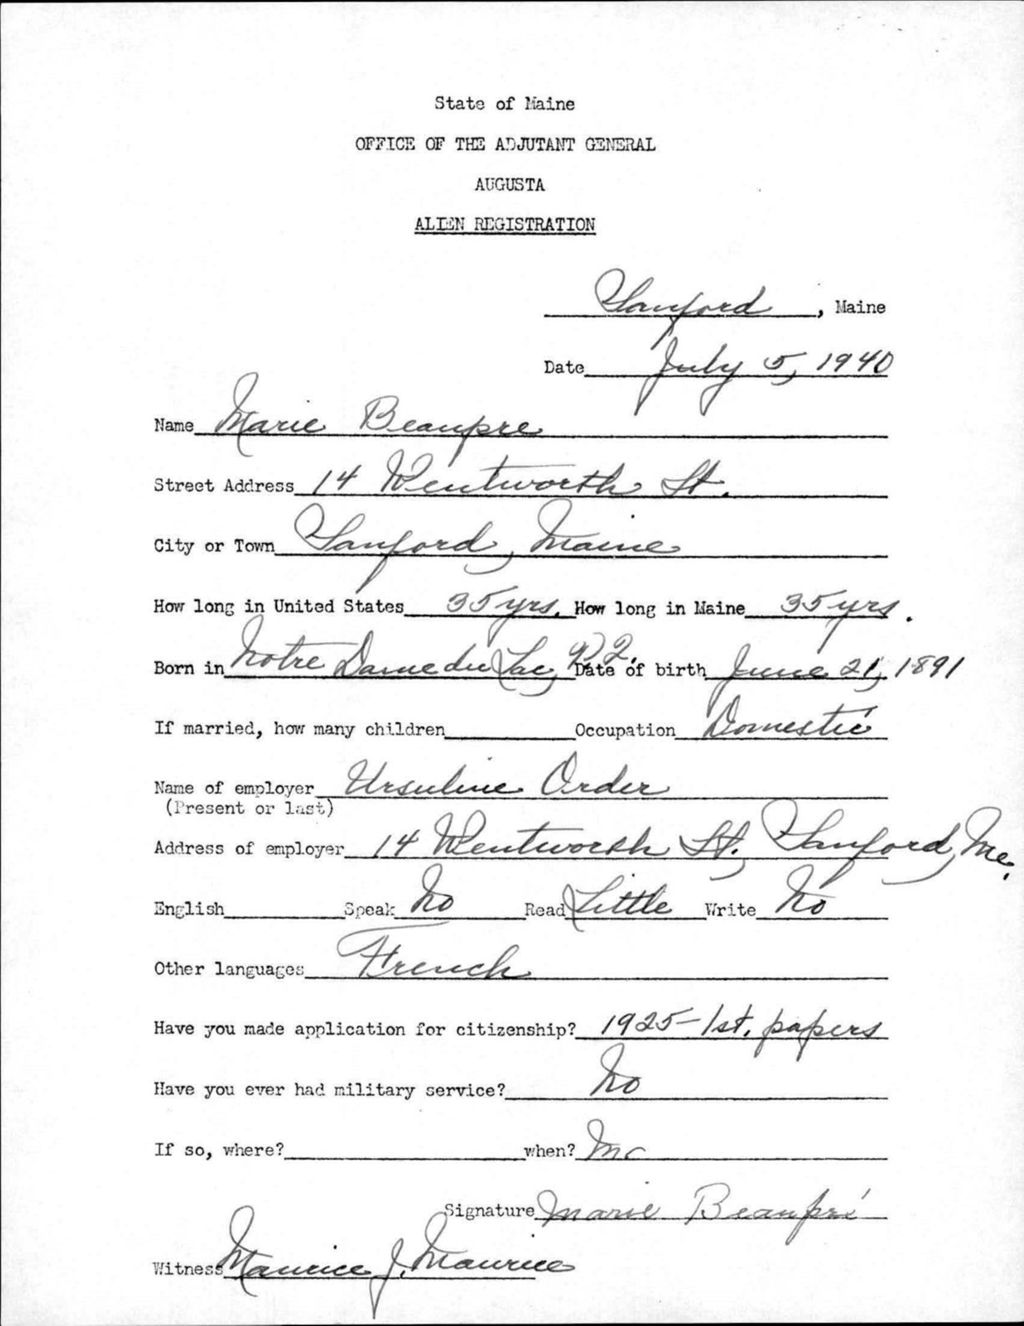 State of Maine
OFFICE OF THE ADJUTANT GENERAL
AUGUSTA
ALIEN REGISTRATION
Sanford, Maine
Date July 5, 1940
Name Marie Beaupre
Street Address 14 Wentworth St.
City or Town Sanford, Maine
How long in United States 35 yrs. How long in Maine 35 yrs.
Born in Notre Dame du Lac, P.Q. Date of birth June 21, 1891
If married, how many children Occupation Domestic
Name of employer Ursuline Order
(Present or last)
Address of employer 14 Wentworth St., Sanford, Me.
English Speak No Read Little Write No
Other languages French
Have you made application for citizenship? 1925 - 1st. papers
Have you ever had military service? No
If so, where? when?
Signature Marie Beaupré
Witness Maurice J. Maurice